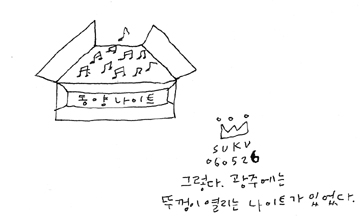 동양나이트
SUKU
060526
그렇다. 광주에는
뚜껑이 열리는 나이트가 있었다.